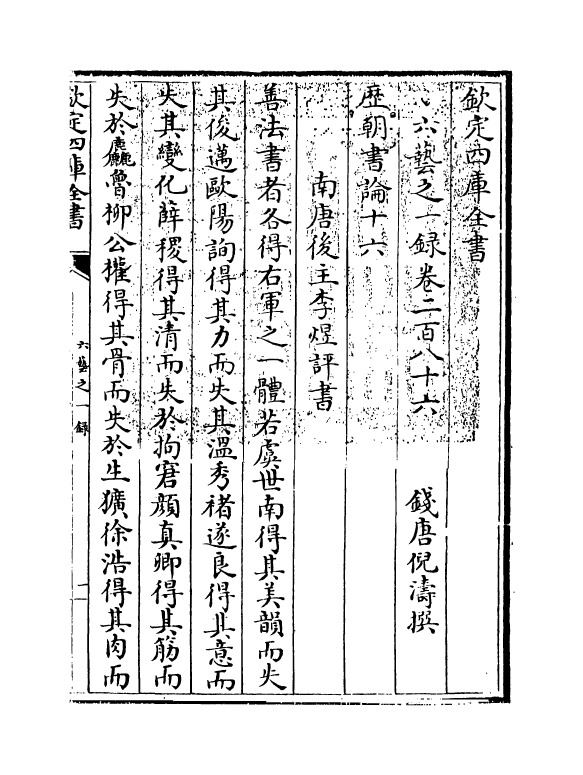 欽定四庫全書
六藝之一録卷二百八十六
錢唐倪濤撰
歴朝書論十六
南唐後主李煜評書
善法書者各得右軍之一體若虞世南得其美韻而失
其俊邁歐陽詢得其力而失其溫秀褚遂良得其意而
失其變化薛稷得其清而失於拘窘顔真卿得其筋而
失於麤魯柳公權得其骨而失於生獷徐浩得其肉而
欽定四庫全書
六藝之一録
一